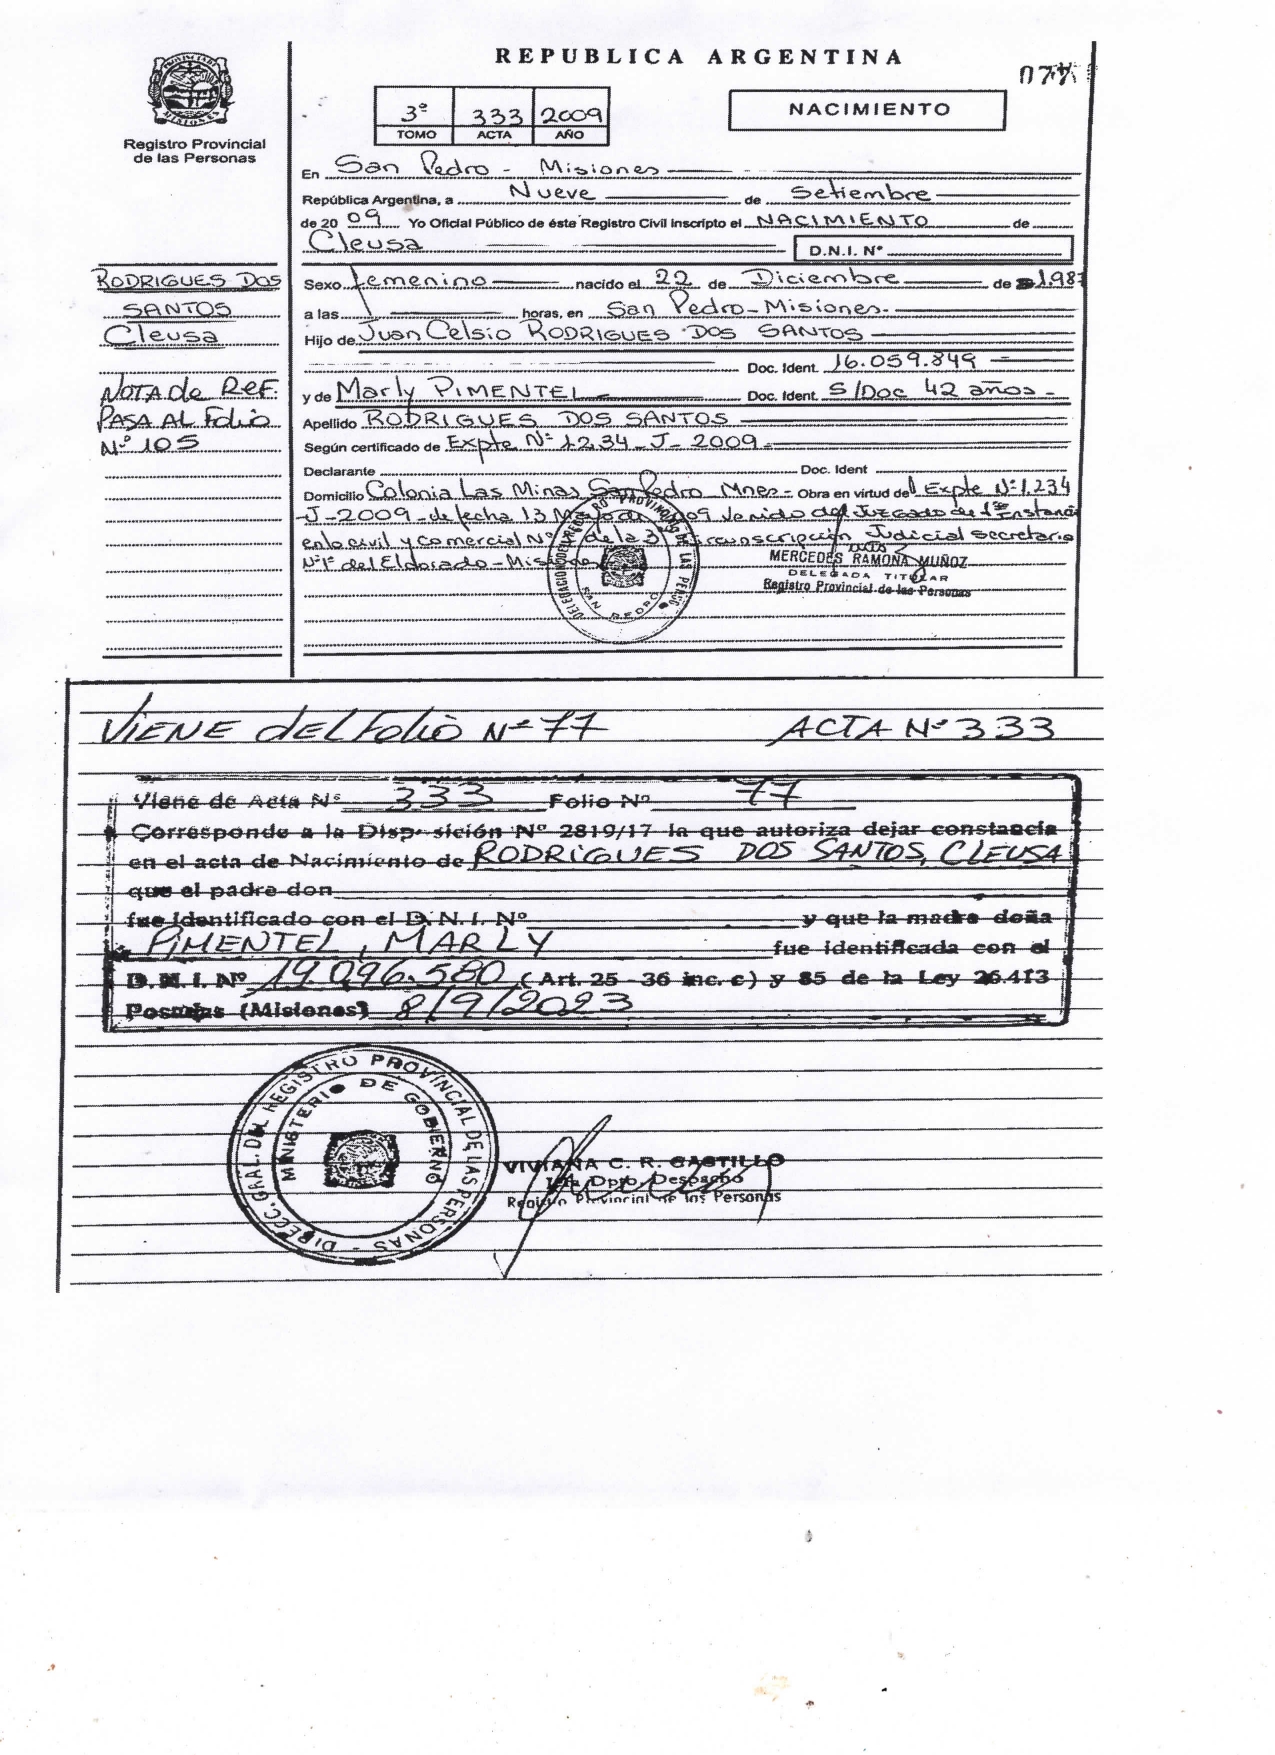 REPUBLICA ARGENTINA
077
PROVINCIA DE MISIONES
Registro Provincial
de las Personas
3º 333 2009
TOMO ACTA AÑO
NACIMIENTO
En San Pedro - Misiones
República Argentina, a Nueve de Setiembre
de 2009 Yo Oficial Público de éste Registro Civil Inscripto el NACIMIENTO de
Cleusa D.N.I. Nº
RODRIGUES DOS
SANTOS
Cleusa
NOTA de REF.
PASA AL Folio
Nº 105
Sexo femenino nacido el 22 de Diciembre de 1.987
a las horas, en San Pedro - Misiones.-
Hijo de Juan Celsio RODRIGUES DOS SANTOS
Doc. Ident. 16.059.849
y de Marly PIMENTEL Doc. Ident. S/Doc 42 años -
Apellido RODRIGUES DOS SANTOS
Según certificado de Expte Nº 1234 - J - 2009 -
Declarante Doc. Ident
Domicilio Colonia Las Minas San Pedro Mnes - Obra en virtud del Expte Nº 1.234
-J-2009 - de fecha 13 Mayo de 2009 venido del Juzgado de 1º Instancia
en lo civil y comercial Nº de la 3 Circunscripción Judicial Secretario
Nº 1º del Eldorado - Misiones
DELEGACION DEL REGISTRO PROVINCIAL DE LAS PERSO
SAN PEDRO
MERCEDES RAMONA MUÑOZ
DELEGADA TITULAR
Registro Provincial de las Personas
VIENE del Folio Nº 77 ACTA Nº 333
Viene de Acta Nº 333 Folio Nº 77
Corresponde a la Disposición Nº 2819/17 la que autoriza dejar constancia
en el acta de Nacimiento de RODRIGUES DOS SANTOS, CLEUSA
que el padre don
fue identificado con el D.N.I. Nº y que la madre doña
PIMENTEL, MARLY fue identificada con el
D.N.I. Nº 19.096.580 (Art. 25 - 36 inc. c) y 85 de la Ley 26.413
Posadas (Misiones) 8/9/2023
DIRECC. GRAL. DEL REGISTRO PROVINCIAL DE LAS PERSONAS -
MINISTERIO DE GOBIERNO
VIVIANA C. R. CASTILLO
Jefa Dpto. Despacho
Registro Provincial de las Personas